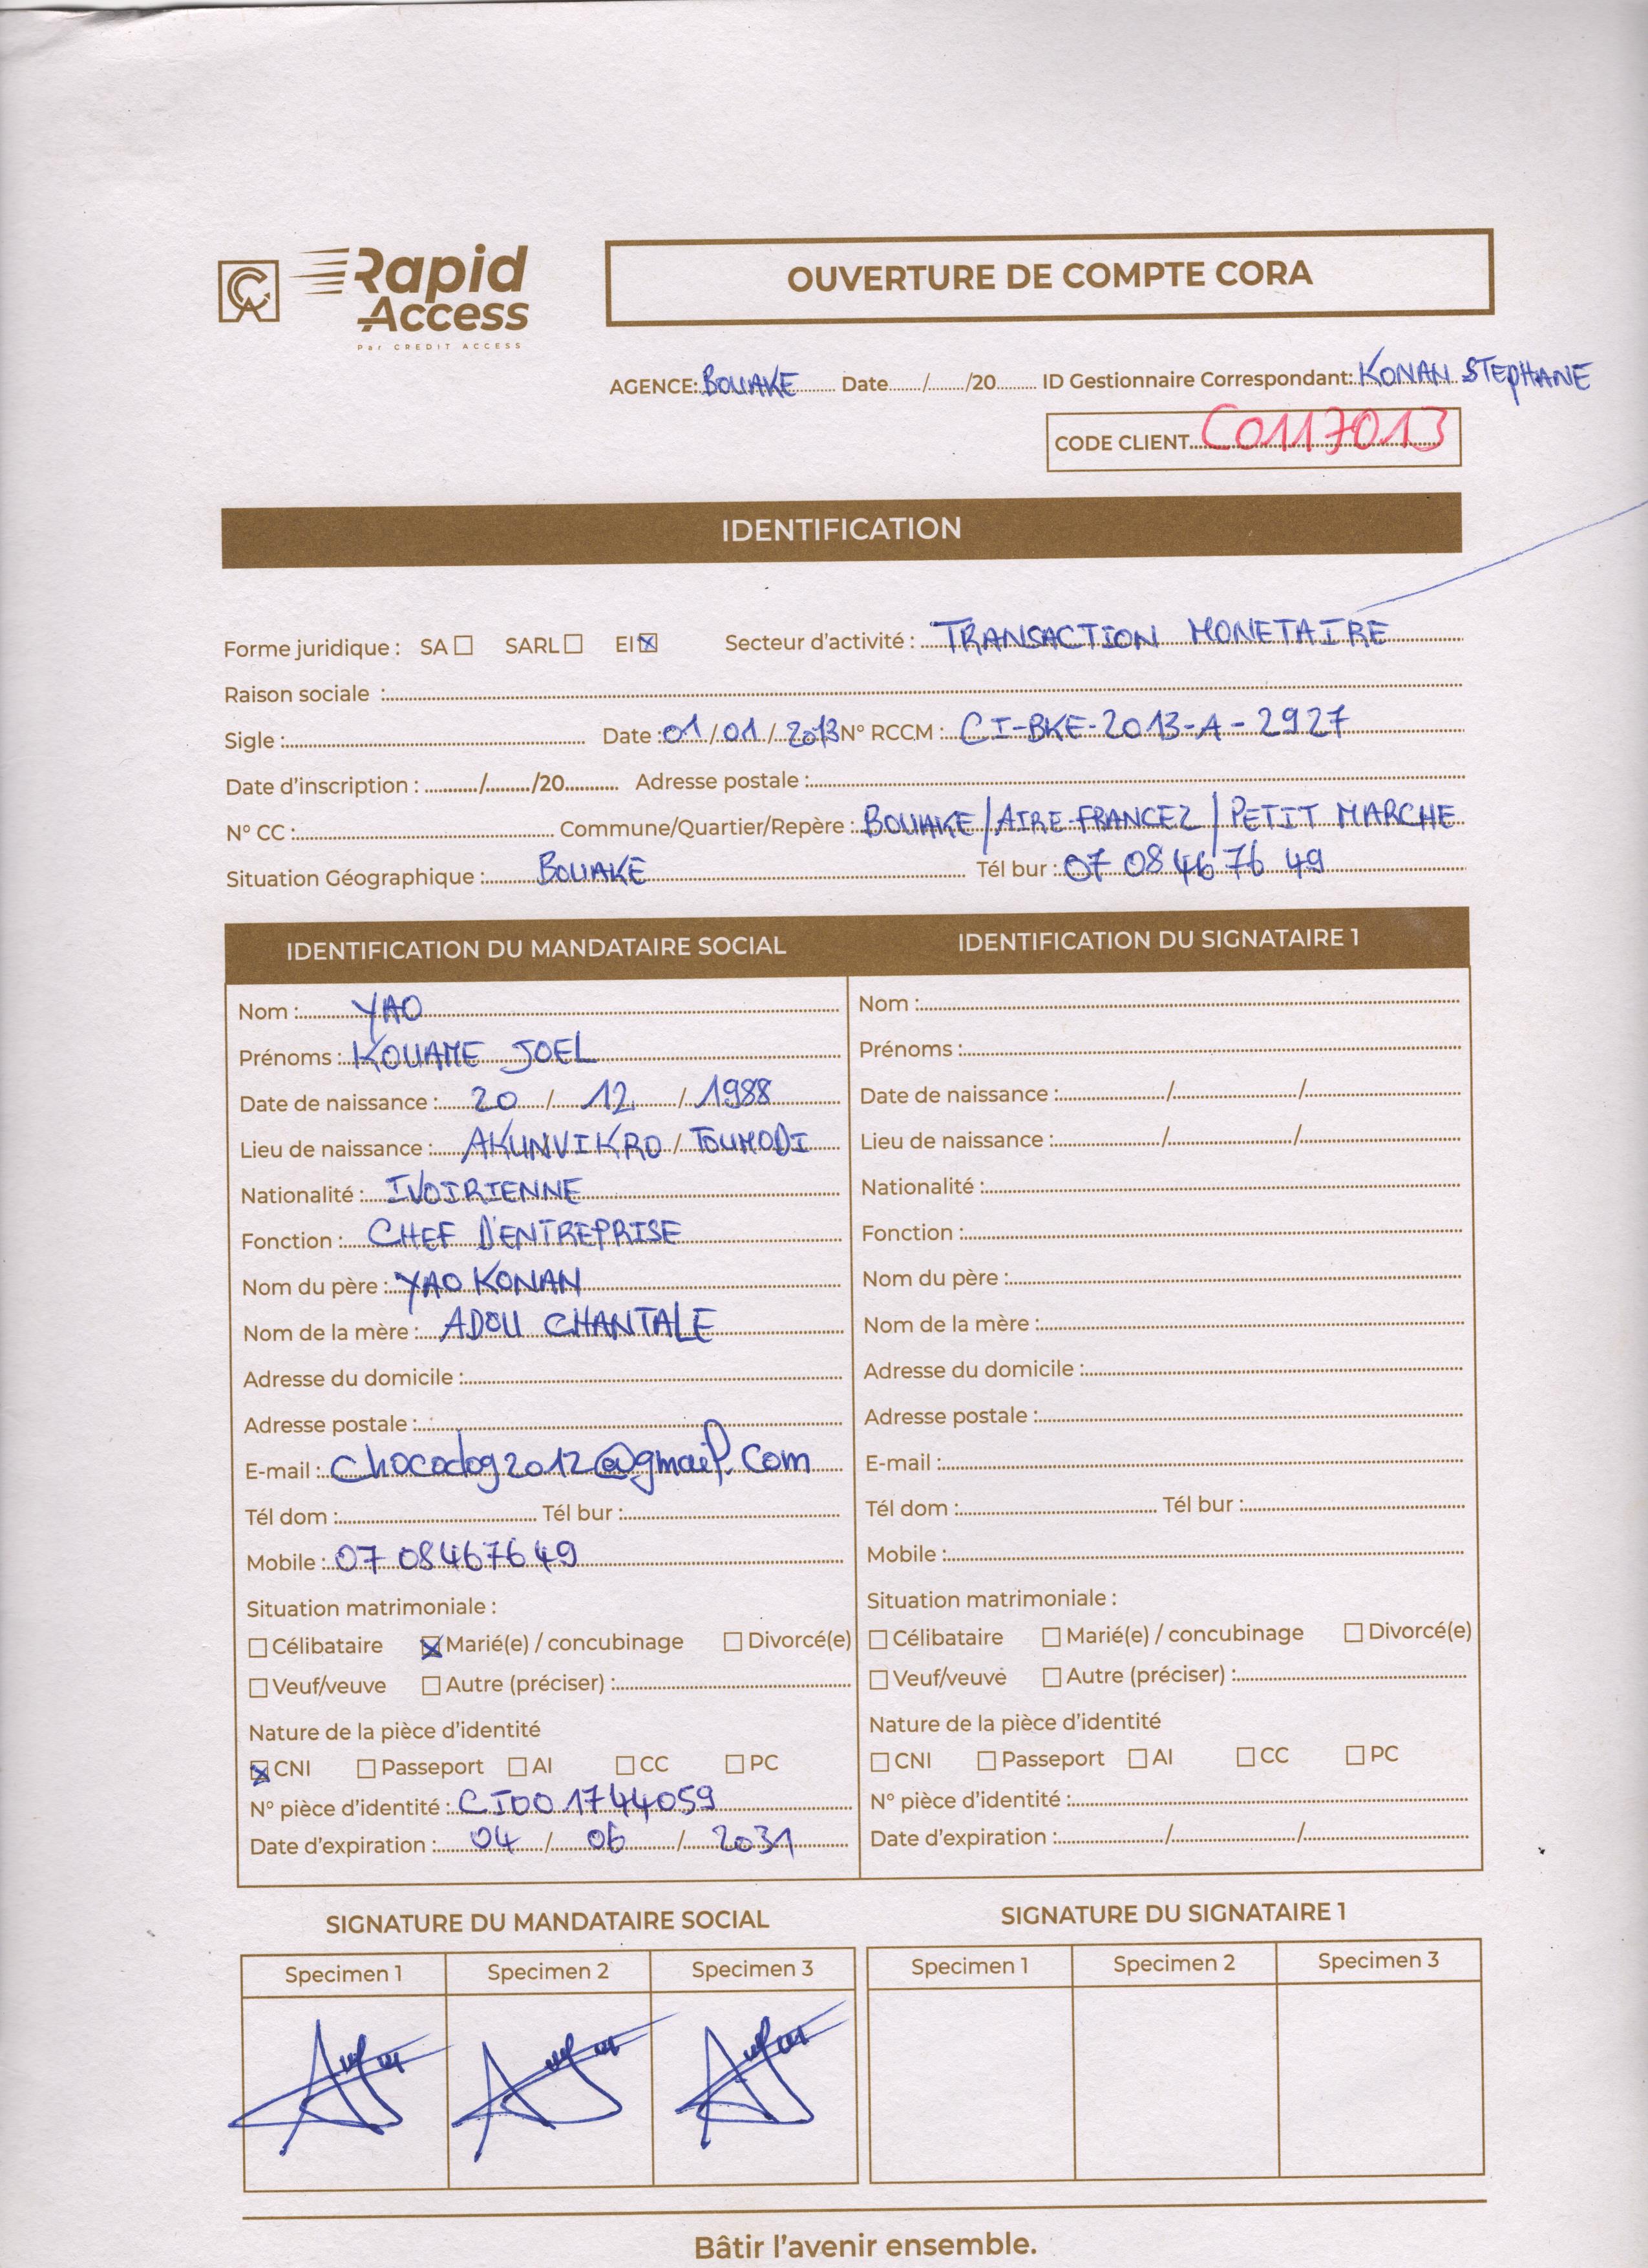 Rapid
Access
Par CREDIT ACCESS
OUVERTURE DE COMPTE CORA
AGENCE: BOUAKE Date....../....../20...... ID Gestionnaire Correspondant: KONAN STEPHANE
CODE CLIENT C0117013
IDENTIFICATION
Forme juridique : SA ☐ SARL ☐ EI ☒ Secteur d'activité : TRANSACTION MONETAIRE
Raison sociale :
Sigle : Date : 01 / 01 / 2013 N° RCCM : CI-BKE-2013-A-2927
Date d'inscription : ....../....../20...... Adresse postale :
N° CC : Commune/Quartier/Repère : BOUAKE/AIRE-FRANCE2/PETIT MARCHE
Situation Géographique : BOUAKE Tél bur : 07 08 46 76 49
IDENTIFICATION DU MANDATAIRE SOCIAL
Nom : YAO
Prénoms : KOUAME JOEL
Date de naissance : 20 / 12 / 1988
Lieu de naissance : AKUNVIKRO / TOUMODI
Nationalité : IVOIRIENNE
Fonction : CHEF D'ENTREPRISE
Nom du père : YAO KONAN
Nom de la mère : ADOU CHANTALE
Adresse du domicile :
Adresse postale :
E-mail : chocodog2012@gmail.com
Tél dom : Tél bur :
Mobile : 07 08 46 76 49
Situation matrimoniale :
☐ Célibataire ☒ Marié(e) / concubinage ☐ Divorcé(e)
☐ Veuf/veuve ☐ Autre (préciser) :
Nature de la pièce d'identité
☒ CNI ☐ Passeport ☐ AI ☐ CC ☐ PC
N° pièce d'identité : CI001744059
Date d'expiration : 04 / 06 / 2031
IDENTIFICATION DU SIGNATAIRE 1
Nom :
Prénoms :
Date de naissance : ....../....../......
Lieu de naissance : ....../....../......
Nationalité :
Fonction :
Nom du père :
Nom de la mère :
Adresse du domicile :
Adresse postale :
E-mail :
Tél dom : Tél bur :
Mobile :
Situation matrimoniale :
☐ Célibataire ☐ Marié(e) / concubinage ☐ Divorcé(e)
☐ Veuf/veuve ☐ Autre (préciser) :
Nature de la pièce d'identité
☐ CNI ☐ Passeport ☐ AI ☐ CC ☐ PC
N° pièce d'identité :
Date d'expiration : ....../....../......
SIGNATURE DU MANDATAIRE SOCIAL
Specimen 1 Specimen 2 Specimen 3
SIGNATURE DU SIGNATAIRE 1
Specimen 1 Specimen 2 Specimen 3
Bâtir l'avenir ensemble.